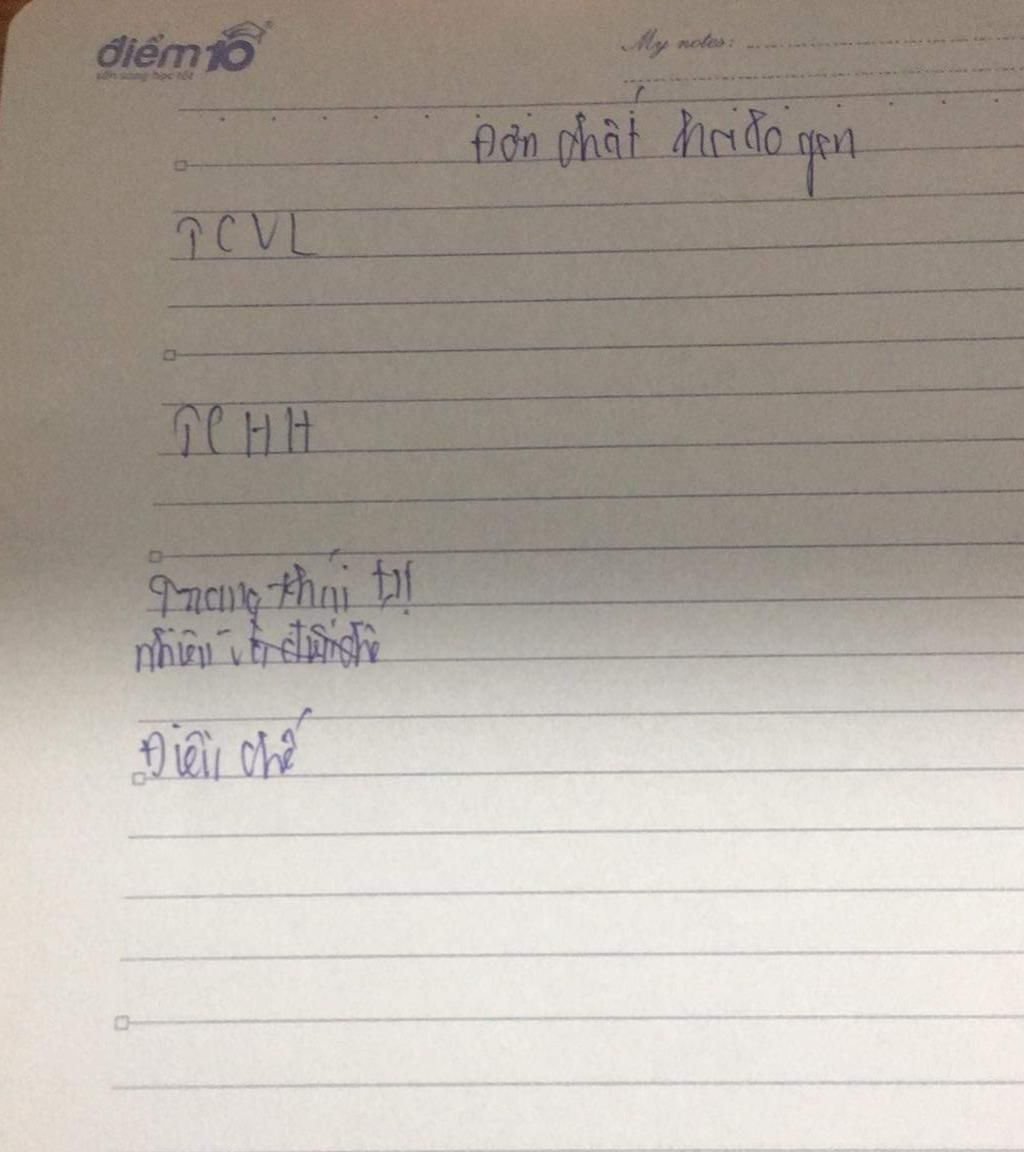 điểm10
sẵn sàng học tốt
My notes:
Đơn chất hiđrogen
TCVL
TCHH
Trạng thái tự
nhiên và điều chế
Điều chế